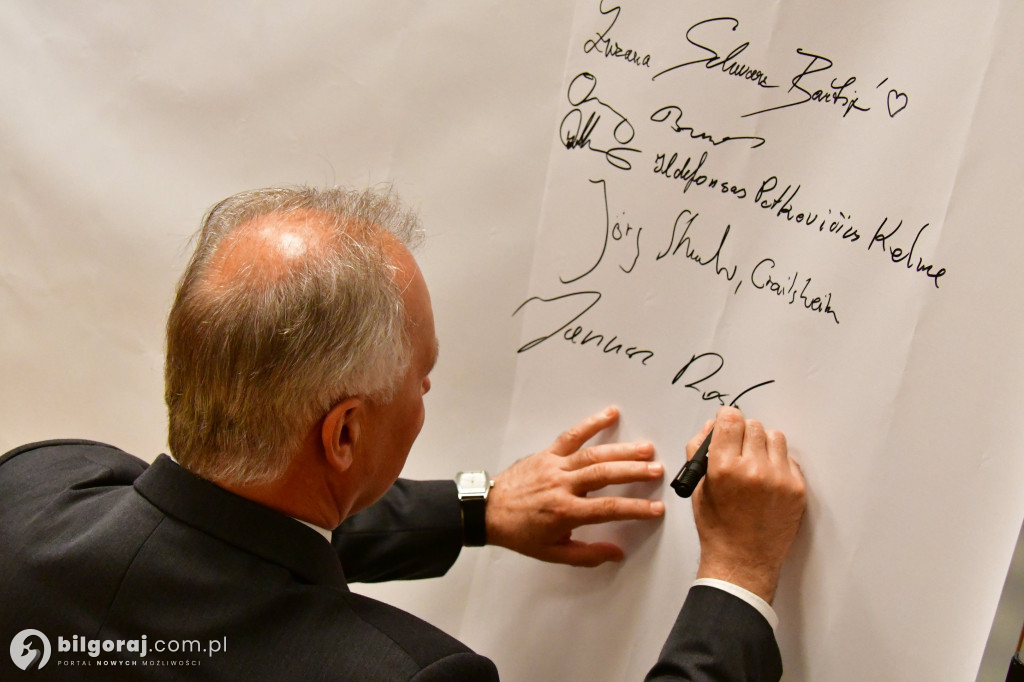 Zuzana Schwarz Bartšíř ♡
Ildefonsas Petkevičius Kelme
Jörg Crailsheim
Janusz Ros
bilgoraj.com.pl
PORTAL NOWYCH MOŻLIWOŚCI